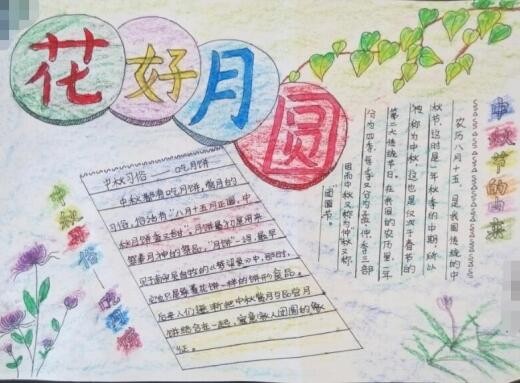 花好月圆
中秋习俗——吃月饼
中秋都有吃月饼,赏月的
习俗,俗话有"八月十五月正圆,中
秋月饼香又甜"。月饼最初是用来
祭奉月神的祭品,"月饼"一词,最早
见于南宋吴自牧的《梦粱录》中,那时,
它也只是像菱花饼一样的饼形食品。
后来人们逐渐把中秋赏月与品尝月
饼结合在一起,寓意家人团圆的象
征。
中秋习俗—吃月饼
中秋节的由来
农历八月十五,是我国传统的中
秋节,这时是一年秋季的中期,所以
被称为中秋,这也是仅次于春节的
第二大传统节日。在我国的农历里,一年
分为四季,每季又分为孟、仲、季三部
因而中秋又称为"仲秋"又称
团圆节。